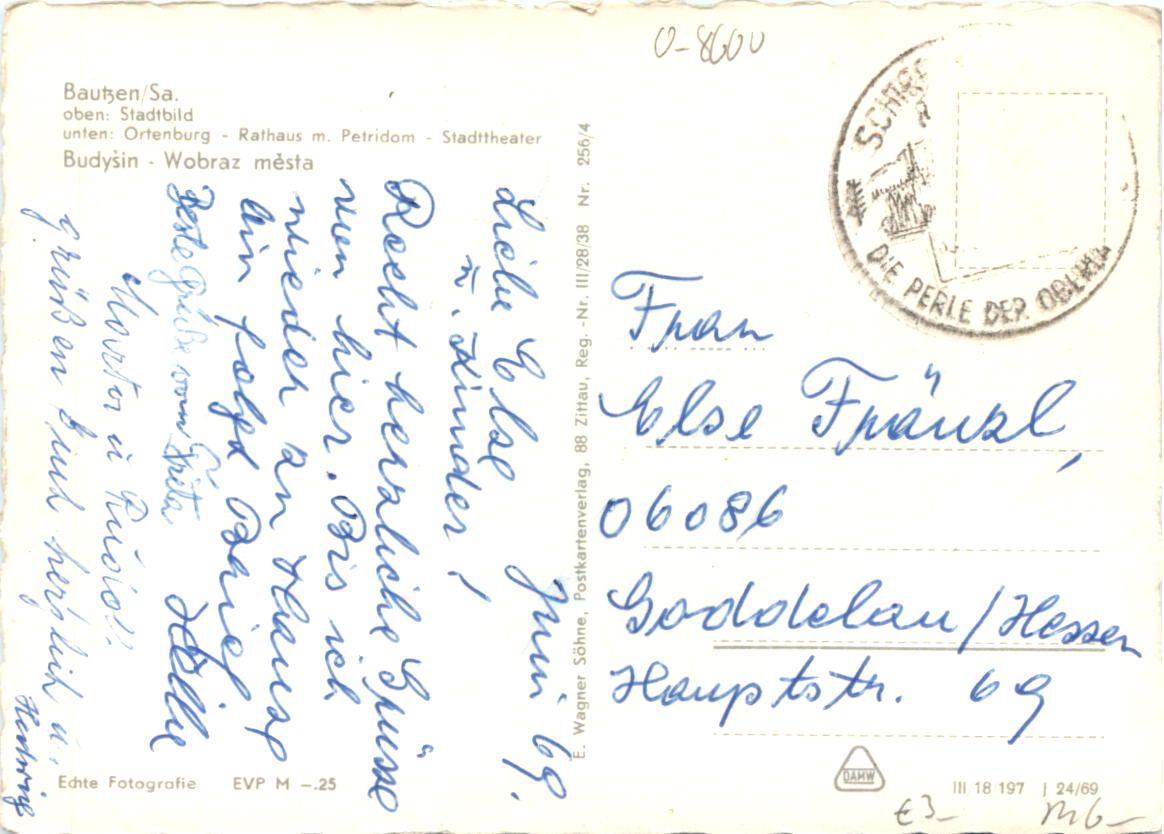 0-8600
Bautzen/Sa.
oben: Stadtbild
unten: Ortenburg - Rathaus m. Petridom - Stadttheater
Budyšin - Wobraz města
Juni 69.
Liebe Else
u. Kinder!
Recht herzliche Grüsse
von hier. Bis ich
wieder zu Hause
bin folgt Brief
Beste Grüße von Grita
grüßen Euch herzlich u.
Hedwig
Echte Fotografie EVP M -.25
E. Wagner Söhne, Postkartenverlag, 88 Zittau, Reg.-Nr. III/28/38 Nr. 256/4
DIE PERLE DER
Frau
Else Fränzl,
06086
Goddelau/Hessen
Hauptstr. 69
DAMW
III 18 197 J 24/69
€3-